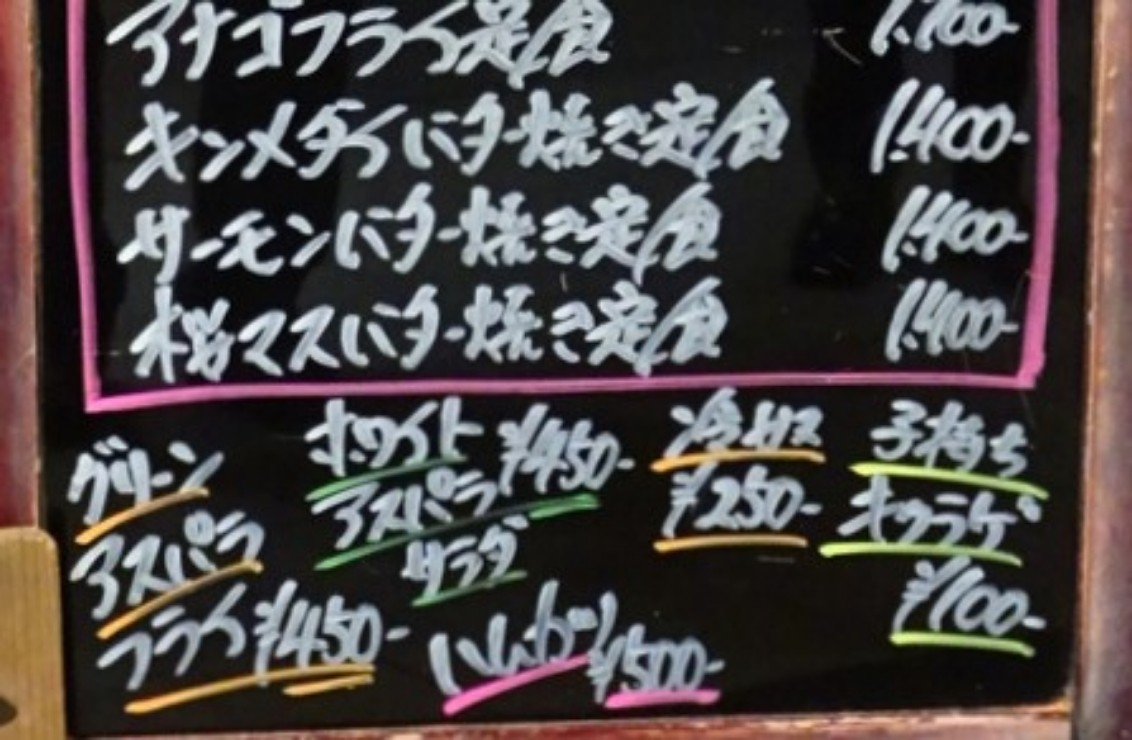 アナゴフライ定食 1.700-
キンメダイバター焼き定食 1.400-
サーモンバター焼き定食 1.400-
桜マスバター焼き定食 1.400-
グリーン
アスパラ
フライ ¥450-
ホワイト
アスパラ ¥450-
サラダ
ハムカツ ¥500-
冷
¥250-
子持ち
キクラゲ
¥100-